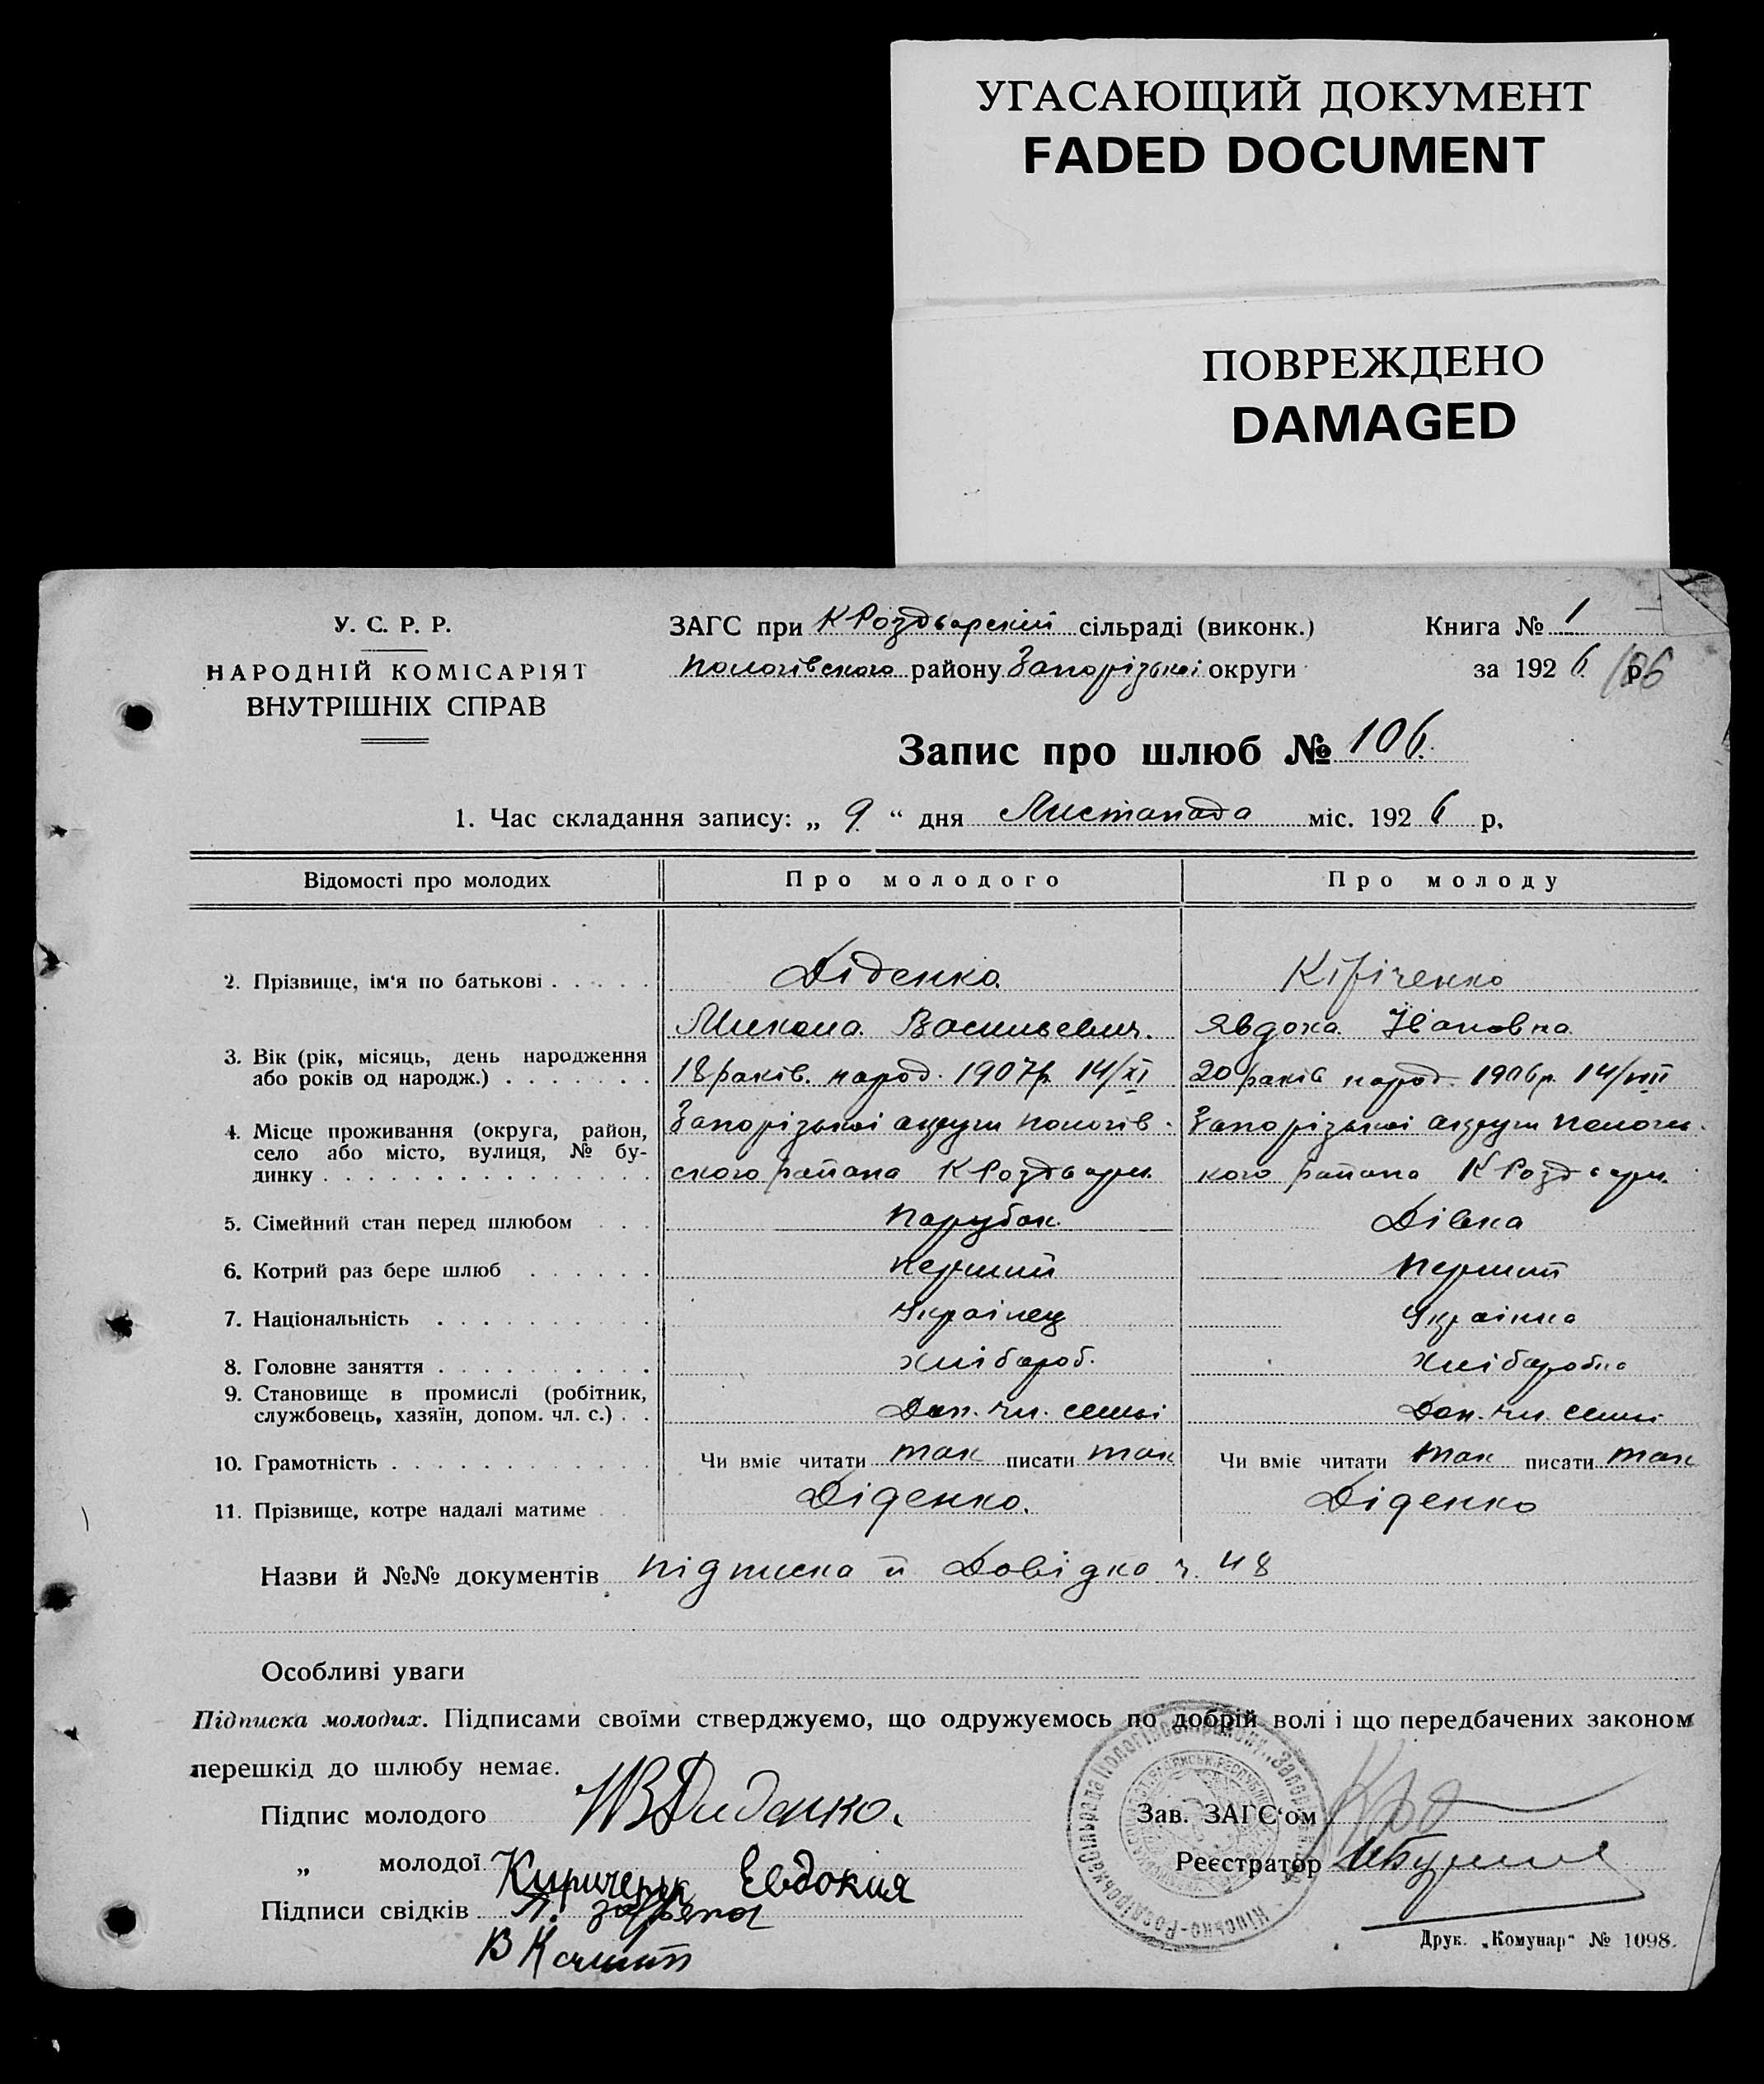 УГАСАЮЩИЙ ДОКУМЕНТ
FADED DOCUMENT
ПОВРЕЖДЕНО
DAMAGED
У. С. Р. Р.
НАРОДНІЙ КОМІСАРІЯТ
ВНУТРІШНІХ СПРАВ
ЗАГС при К Роздорский сільраді (виконк.)
Пологівского району Запорізької округи
Книга № 1
за 1926 р.
106
Запис про шлюб № 106.
1. Час складання запису: „ 9 “ дня Листопада міс. 1926 р.
Відомості про молодих Про молодого Про молоду
2. Прізвище, ім'я по батькові Діденко Кіріченко
Микола Васильевич. Явдоха Івановна
3. Вік (рік, місяць, день народження
або років од народж.) 18 років. народ. 1907р. 14/XI 20 років народ. 1906р. 14/VIII
4. Місце проживання (округа, район,
село або місто, вулиця, № бу-
динку
Запорізької округи Пологів-
ского района К Роздори
Запорізької округи Пологів-
кого района К Роздори
5. Сімейний стан перед шлюбом Парубок Дівка
6. Котрий раз бере шлюб Перший Перший
7. Національність Українец Українка
8. Головне заняття хлібороб. хлібаробка
9. Становище в промислі (робітник,
службовець, хазяїн, допом. чл. с.) Доп. чл. семьі Доп. чл. семьі
10. Грамотність Чи вміє читати так писати так Чи вміє читати так писати так
11. Прізвище, котре надалі матиме Діденко. Діденко
Назви й №№ документів Підписка й Довідка ч. 48
Особливі уваги
Підписка молодих. Підписами своїми стверджуємо, що одружуємось по добрій волі і що передбачених законом
перешкід до шлюбу немає.
Підпис молодого НВДиденко.
„ молодої Кириченк Евдокия
Підписи свідків
Зав. ЗАГС'ом
Реєстратор
Друк. „Комунар“ № 1098.